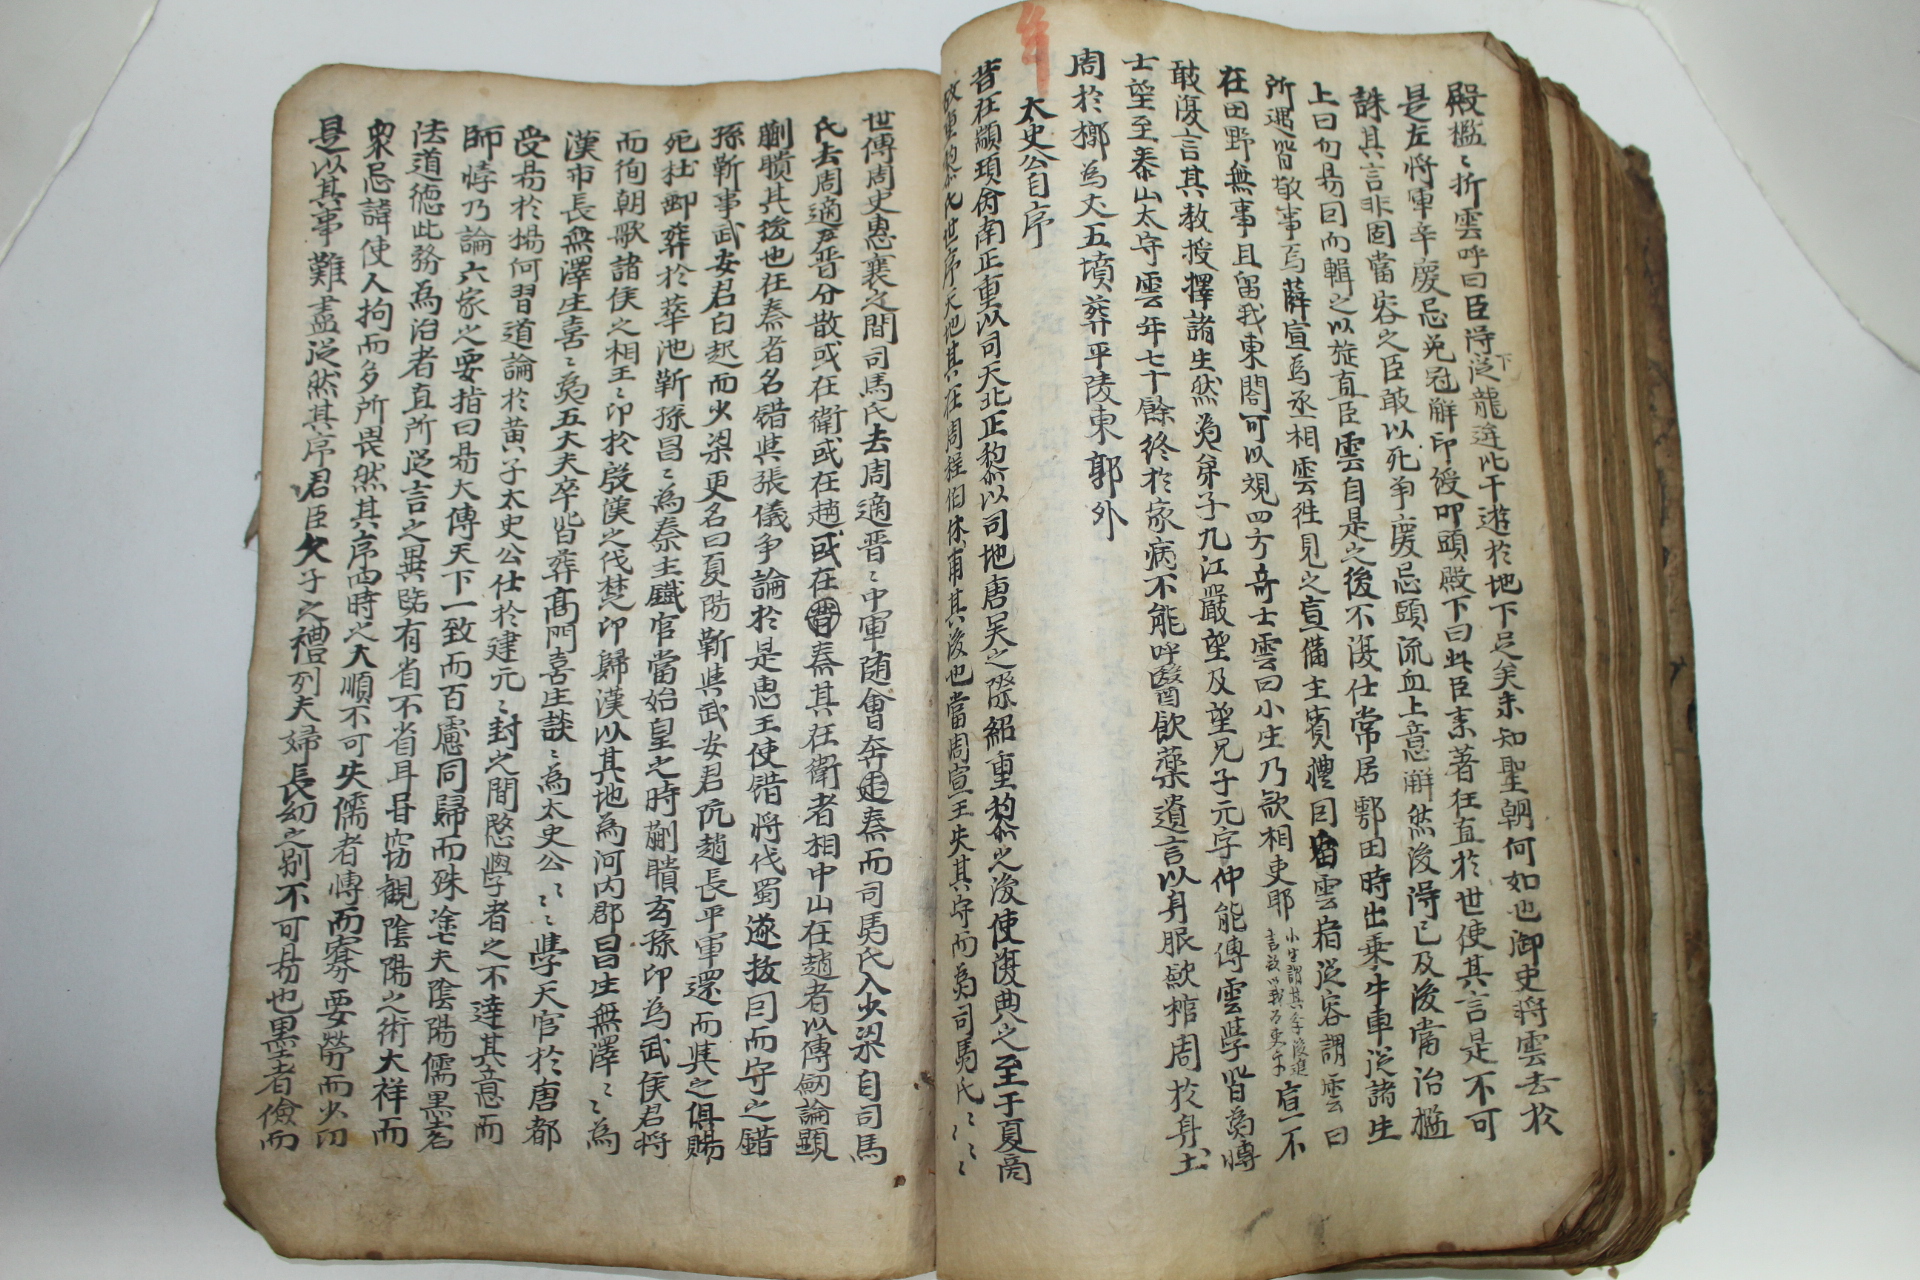 殿檻〻折雲呼曰臣得下從龍逄比干遊於地下足矣未知聖朝何如也御史將雲去於
是左將軍辛慶忌免冠解印綬叩頭殿下曰此臣素著狂直於世使其言是不可
誅其言非固當容之臣敢以死爭慶忌頭流血上意解然後得已及後當治檻
上曰勿易因而輯之以旌直臣雲自是之後不復仕常居鄠田時出乘牛車從諸生
所過皆敬事焉薛宣爲丞相雲徃見之宣備主賓禮因留雲宿從容謂雲曰
在田野無事且留我東閤可以視四方奇士雲曰小生乃欲相吏耶小生謂其學後進言欲以我爲吏乎宣不
敢復言其教授擇諸生然為弟子九江嚴望及望兄子元字仲能傳雲學皆為博
士望至泰山太守雲年七十餘終於家病不能呼醫飮藥遺言以身服歛棺周於身土
周於槨爲丈五墳葬平陵東郭外
太史公自序
昔在顓頊命南正重以司天北正黎以司地唐吴之際紹重黎之後使復典之至于夏商
故重黎氏世序天地其在周程伯休甫其後也當周宣王失其守而為司馬氏〻〻〻
世傳周史惠襄之間司馬氏去周適晉〻中軍随會奔走秦而司馬氏入少梁自司馬
氏去周適晉分散或在衛或在趙或在秦其在衛者相中山在趙者以傳劒論顯
蒯聵其後也在秦者名錯與張儀爭論於是惠王使錯將伐蜀遂拔因而守之錯
孫靳事武安君白起而少梁更名曰夏陽靳與武安君阬趙長平軍還而與之俱賜
死杜郵葬於華池靳孫昌〻為秦主鐵官當始皇之時蒯聵玄孫卬為武侯君將
而徇朝歌諸侯之相王〻卬於殷漢之伐楚卬歸漢以其地為河內郡昌生無澤〻為
漢市長無澤生喜〻為五大夫卒皆葬高門喜生談〻為太史公〻〻〻學天官於唐都
受易於楊何習道論於黄子太史公仕於建元〻封之間愍學者之不達其意而
師悖乃論六家之要指曰易大傳天下一致而百慮同歸而殊塗夫陰陽儒墨名
法道德此務為治者直所從言之異路有省不省耳甞窃觀陰陽之術大祥而
衆忌諱使人拘而多所畏然其序四時之大順不可失儒者博而寡要勞而少功
是以其事難盡從然其序君臣父子之禮列夫婦長幼之别不可易也墨者儉而